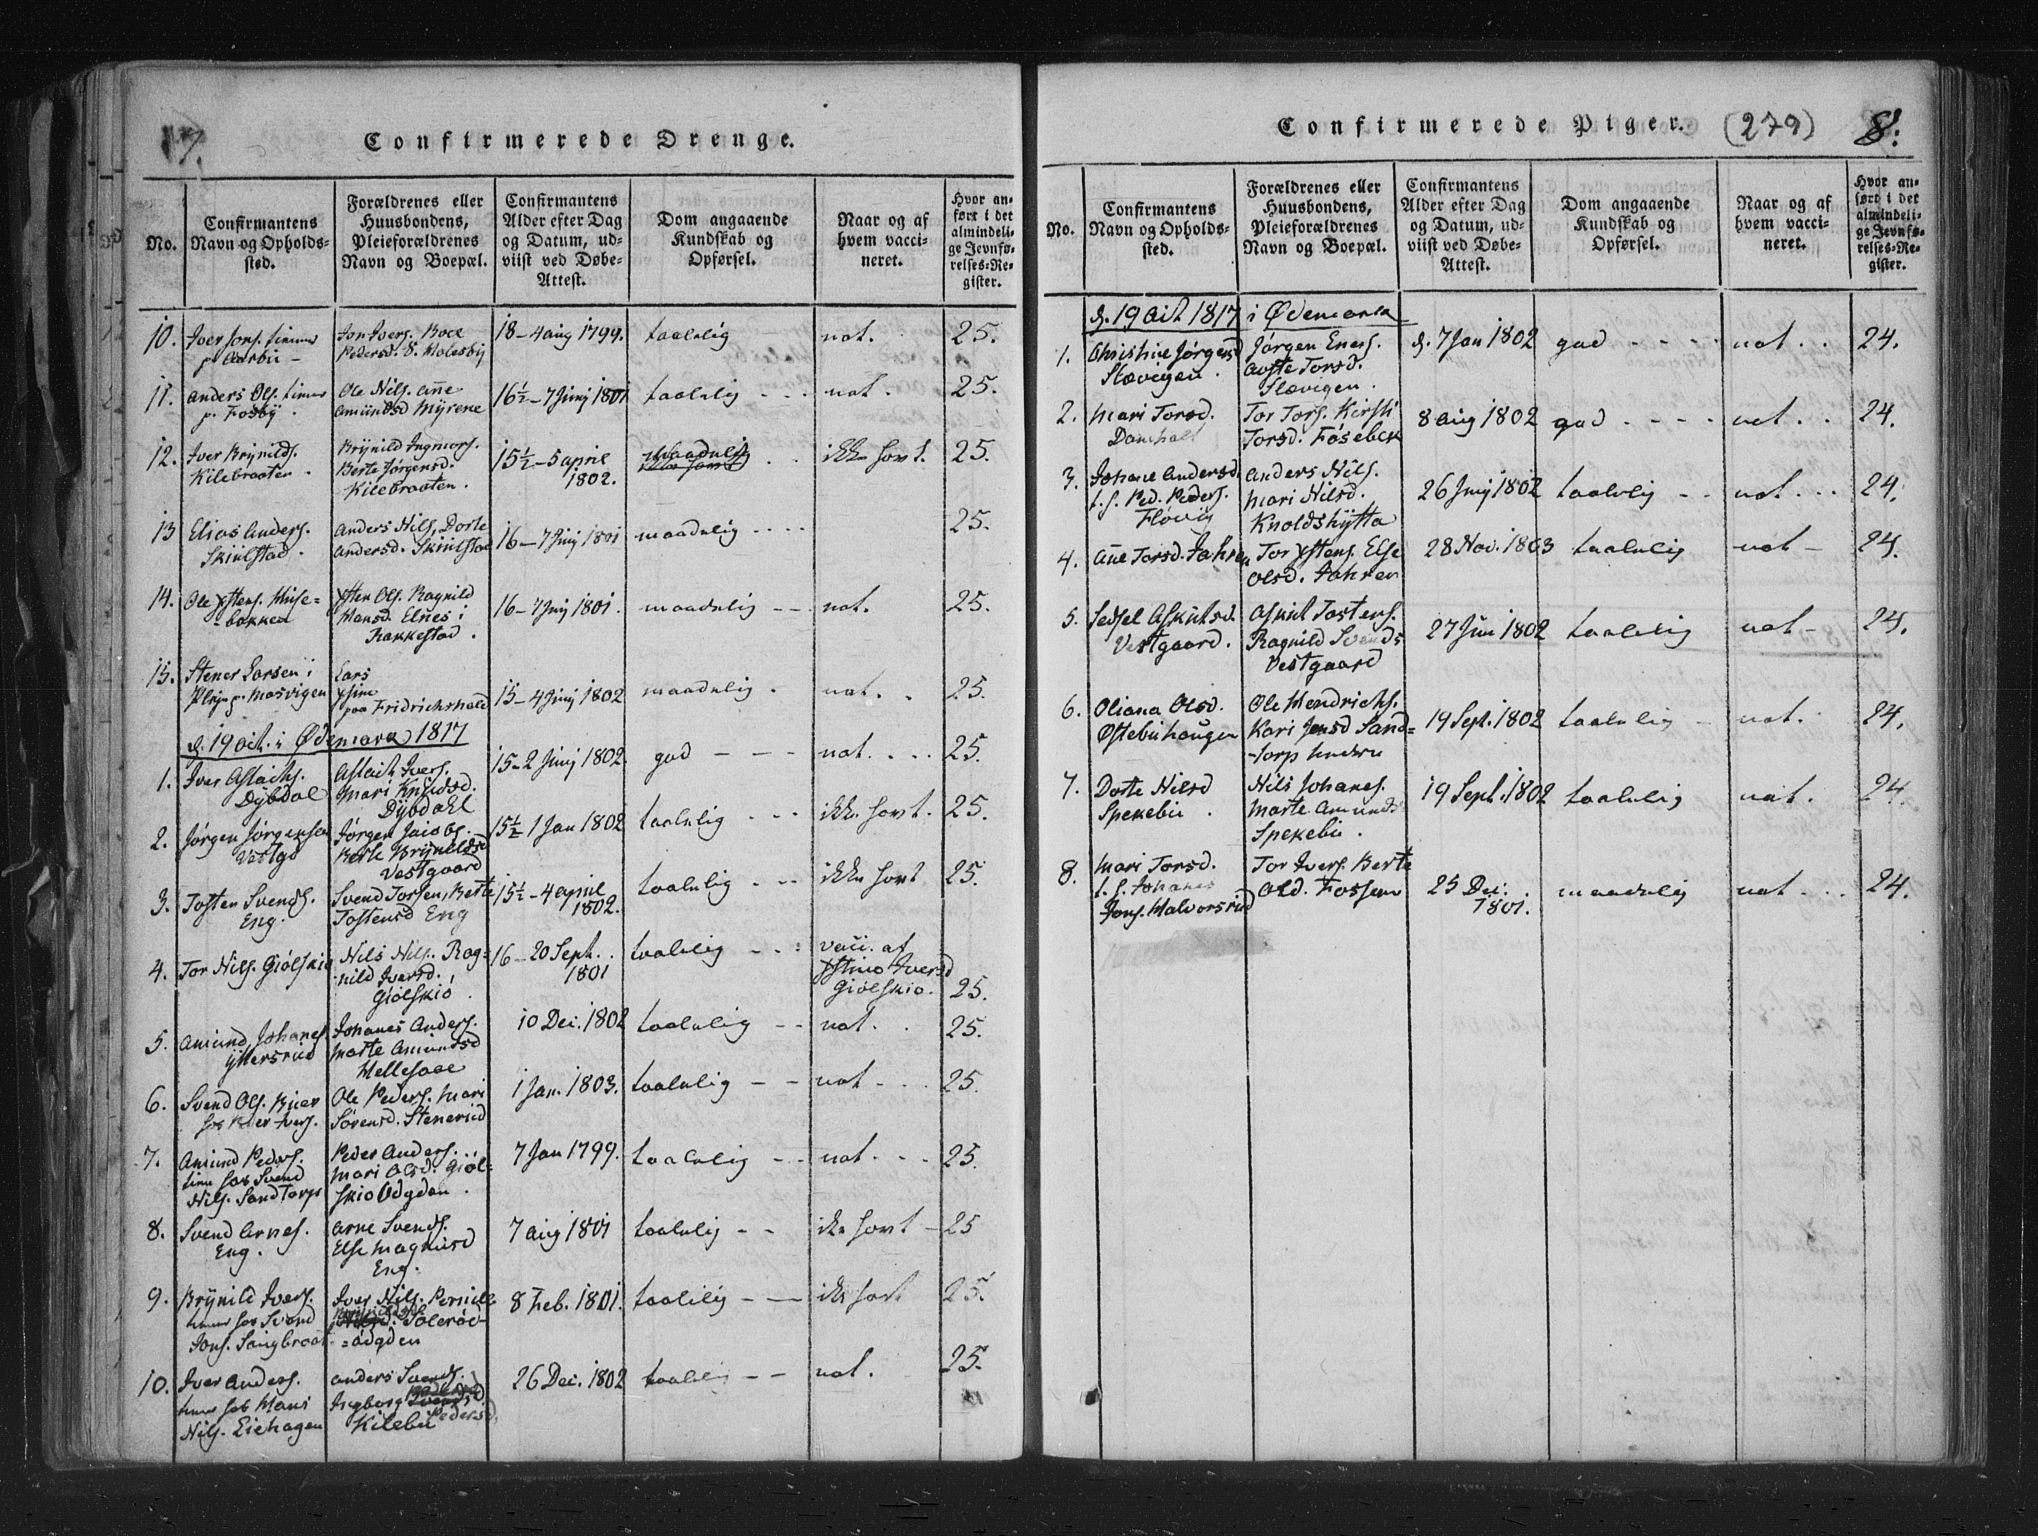 7.
Confirmerede Drenge.
No.
Confirmantens
Navn og Opholds-
sted.
Forældrenes eller
Huusbondens,
Pleieforældrenes
Navn og Boepæl.
Confirmantens
Alder efter Dag
og Datum, ud-
viist ved Døbe-
Attest.
Dom angaaende
Kundskab og
Opførsel.
Naar og af
hvem vacci-
neret.
Hvor an-
ført i det
almindeli-
ge Jevnfø-
relses-Re-
gister.
10. Iver Jons. tiener
p. Aarbu -
Jon Ivers. Boel
Pedersd. S. Holesby
18 - 4 aug 1799. taalelig nat. 25.
11. Anders Ols. tiener
p. Fosby.
Ole Nils. Ane
Amundsd Myrene
16½ - 7 Junj 1801 taalelig nat. 25.
12. Iver Brynilds.
Kilebraaten.
Brynild Ingmars.
Berte Jørgensd.
Kilebraaten.
15½ - 5 april
1802.
maadelig
ikke havt. 25.
13 Elias Anders.
Skiulstad.
Anders Nils. Dorte
Andersd. Skiulstad
16 - 7 Junj 1801 maadelig 25.
14. Ole Xstens. Huse-
-bakken
Xsten Ols. Ragnild
Hansd. Elnes i
Rakkestad.
16 - 7 Junj 1801. maadelig nat. 25.
15. Stener Larsen i
Pleje p. Mosvigen
Lars
Xstine
paa Fridrichshald
15 - 4 Junj 1802 maadelig. nat. 25.
d. 19 Oct. i Ødemark 1817
1. Iver Aslachs.
Dybdal
Aslach Ivers.
Mari Knudsd.
Dybdahl
15 - 2 Junj 1802. god nat. 25.
2. Jørgen Jørgensen
Vestgd
Jørgen Jacobs.
Berte Brynildsd
Vestgaard
15½ 1 Jan 1802 taalelig ikke havt. 25.
3. Tosten Svends.
Eng.
Svend Torsen, Berte
Tostensd Eng
15½ - 4 aprile
1802.
taalelig ikke havt 25.
4. Tor Nils. Giølskio
Nils Nils. Rag-
nild Iversd.
Giølskio.
16 - 20 Sept.
1801
taalelig
vacc. af
Xstine Iversd
Giølskio. 25.
5. Amund Johanes
Yttersrud
Johanes Anders.
Marte Amundsd
Hellesaae
10 Dec. 1802 taalelig nat. 25.
6. Svend Ols. Buer
hos Peer Ivers.
Ole Peders. Mari
Sørensd. Stenerud
1 Jan. 1803. taalelig nat 25.
7. Amund Peders.
tiener hos Svend
Nils. Sandtorp
Peder Anders.
Mari Olsd. Giøl-
skio Odgden.
7 Jan 1799. taalelig nat 25.
8. Svend Arnes.
Eng.
Arne Svends.
Else Magnusd
Eng.
7 aug 1801 taalelig ikke havt 25
9. Brynild Ivers.
tiener hos Svend
Jons. Sangbraat.
Iver Nils. Pernille
Solerød-
=ødgden
8 Feb. 1801. taalelig ikke havt 25.
10. Iver Anders.
tiener hos Hans
Nils. Eichagen
Anders Svends.
Ingborg
Pedersd.
Kilebu
26 Dec. 1802 taalelig nat. 25.
Confirmerede Piger. (279) 8.
No.
Confirmantens
Navn og Opholds-
sted.
Forældrenes eller
Huusbondens,
Pleieforældrenes
Navn og Boepæl.
Confirmantens
Alder efter Dag
og Datum, ud-
viist ved Døbe-
Attest.
Dom angaaende
Kundskab og
Opførsel.
Naar og af
hvem vacci-
neret.
Hvor an-
ført i det
almindeli-
ge Jevnfø-
relses-Re-
gister.
d. 19 Oct 1817 i Ødemark
1. Christine Jørgensd
Slævigen.
Jørgen Eners.
Avste Torsd.
Slævigen.
d. 7 Jan 1802 god nat 24.
2. Mari Torsd.
Damholt
Tor Tors. Kirsti
Torsd. Føsebek
8 aug 1802 god nat. 24.
3. Johane Andersd.
t. h. Ped. Peders.
Fløvig
Anders Nils.
Mari Nilsd.
Knoldshytta
26 Junj 1802 taalelig nat 24.
4. Ane Torsd. Jahren
Tor Xstens. Else
Olsd. Jahren
28 Nov. 1803 taalelig nat - 24.
5. Sedsel Askutsd.
Vestgaard.
Askut Tostens.
Ragnild Svends
Vestgaard
27 Jun 1802 taalelig nat - 24.
6. Oliana Olsd.
Østebuhaugen
Ole Hendrichs.
Kari Jensd Sand=
-torp
19 Sept. 1802 taalelig nat. 24.
7. Dorte Nilsd
Spekebu.
Nils Johanes.
Marte Amunds
Spekebu.
19 Sept. 1802 taalelig nat. 24.
8. Mari Torsd.
t. h. Johanes
Jons. Halvorsrud
Tor Ivers. Berte
Olsd. Fossum
25 Dec.
1801.
maadelig nat 24.